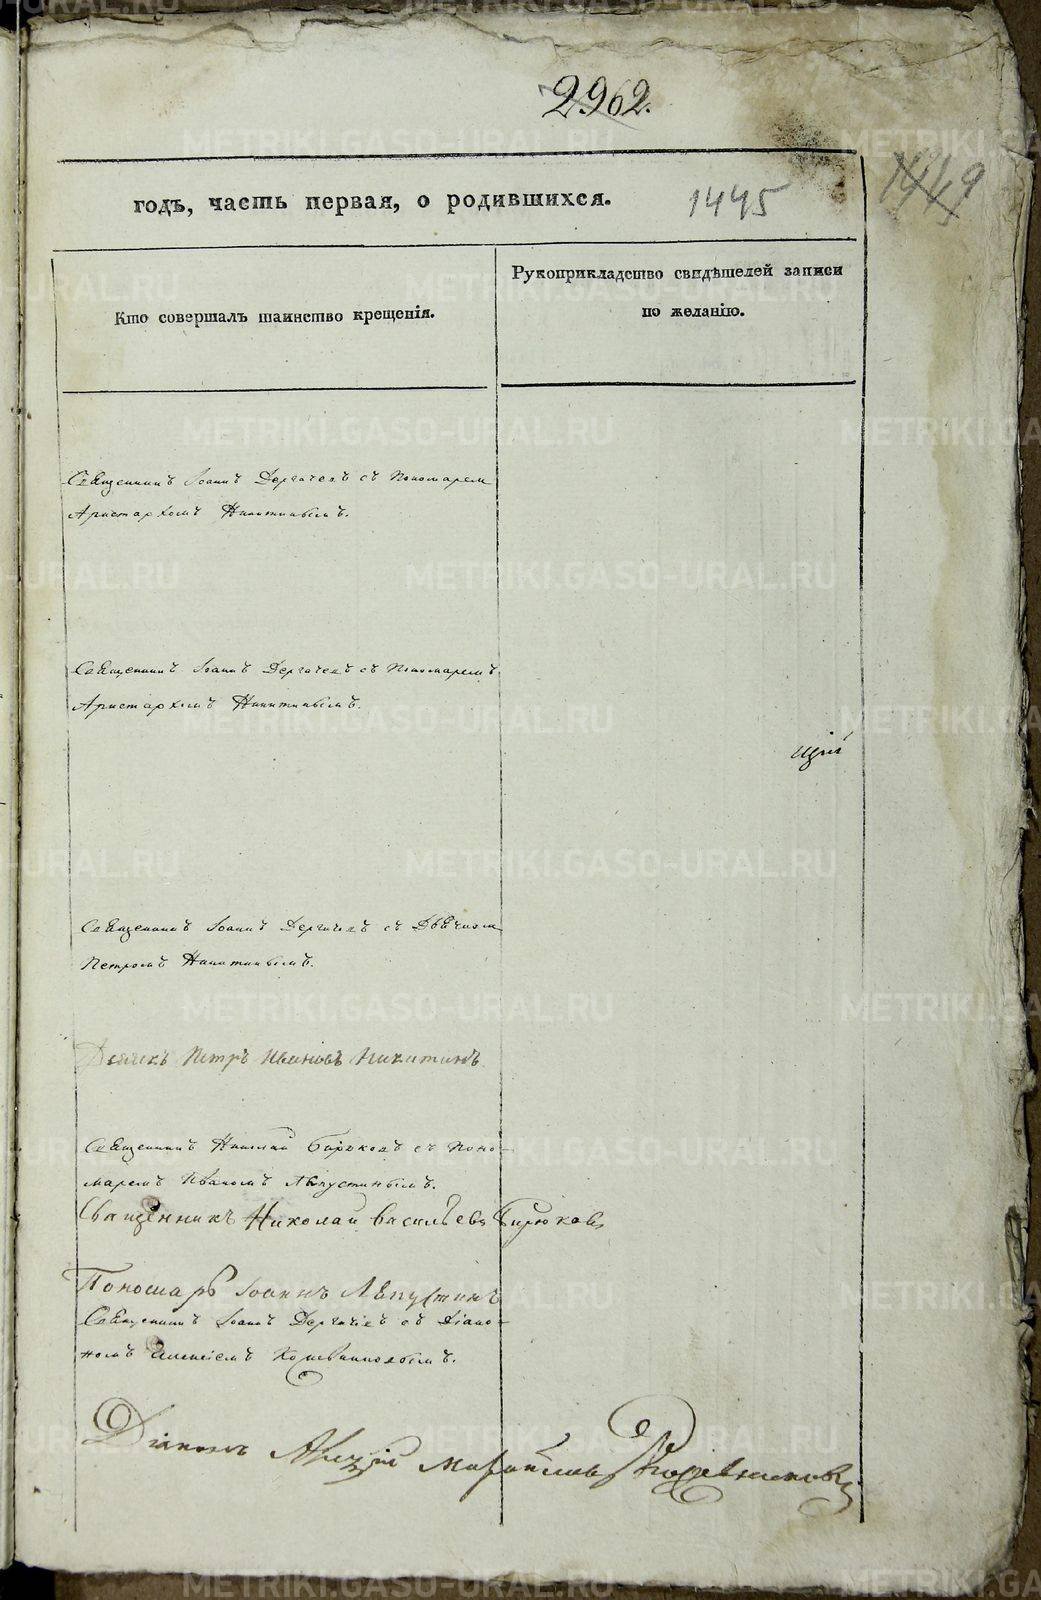 2962.
годъ, часть первая, о родившихся.
1445
1449
Кто совершалъ таинство крещенія.
Рукоприкладство свидѣтелей записи
по желанію.
Священникъ Іоаннъ Дергачевъ съ Пономарем
Аристархомъ Никитинымъ.
Священникъ Іоаннъ Дергачевъ съ Пономаремъ
Аристархомъ Никитинымъ.
Священникъ Іоаннъ Дергачевъ съ Дьячком
Петромъ Никитинымъ.
Дьячекъ Петръ Ивановъ Никитинъ
Священникъ Николай Бирюковъ съ Поно-
маремъ Иваномъ Августинымъ.
Священникъ Николай Васильевъ Бирюковъ
Пономарь Іоаннъ Августинъ
Священникъ Іоаннъ Дергачевъ съ Діако-
номъ Алексіемъ
Діаконъ Алексій Михайловъ
METRIKI.GASO-URAL.RU